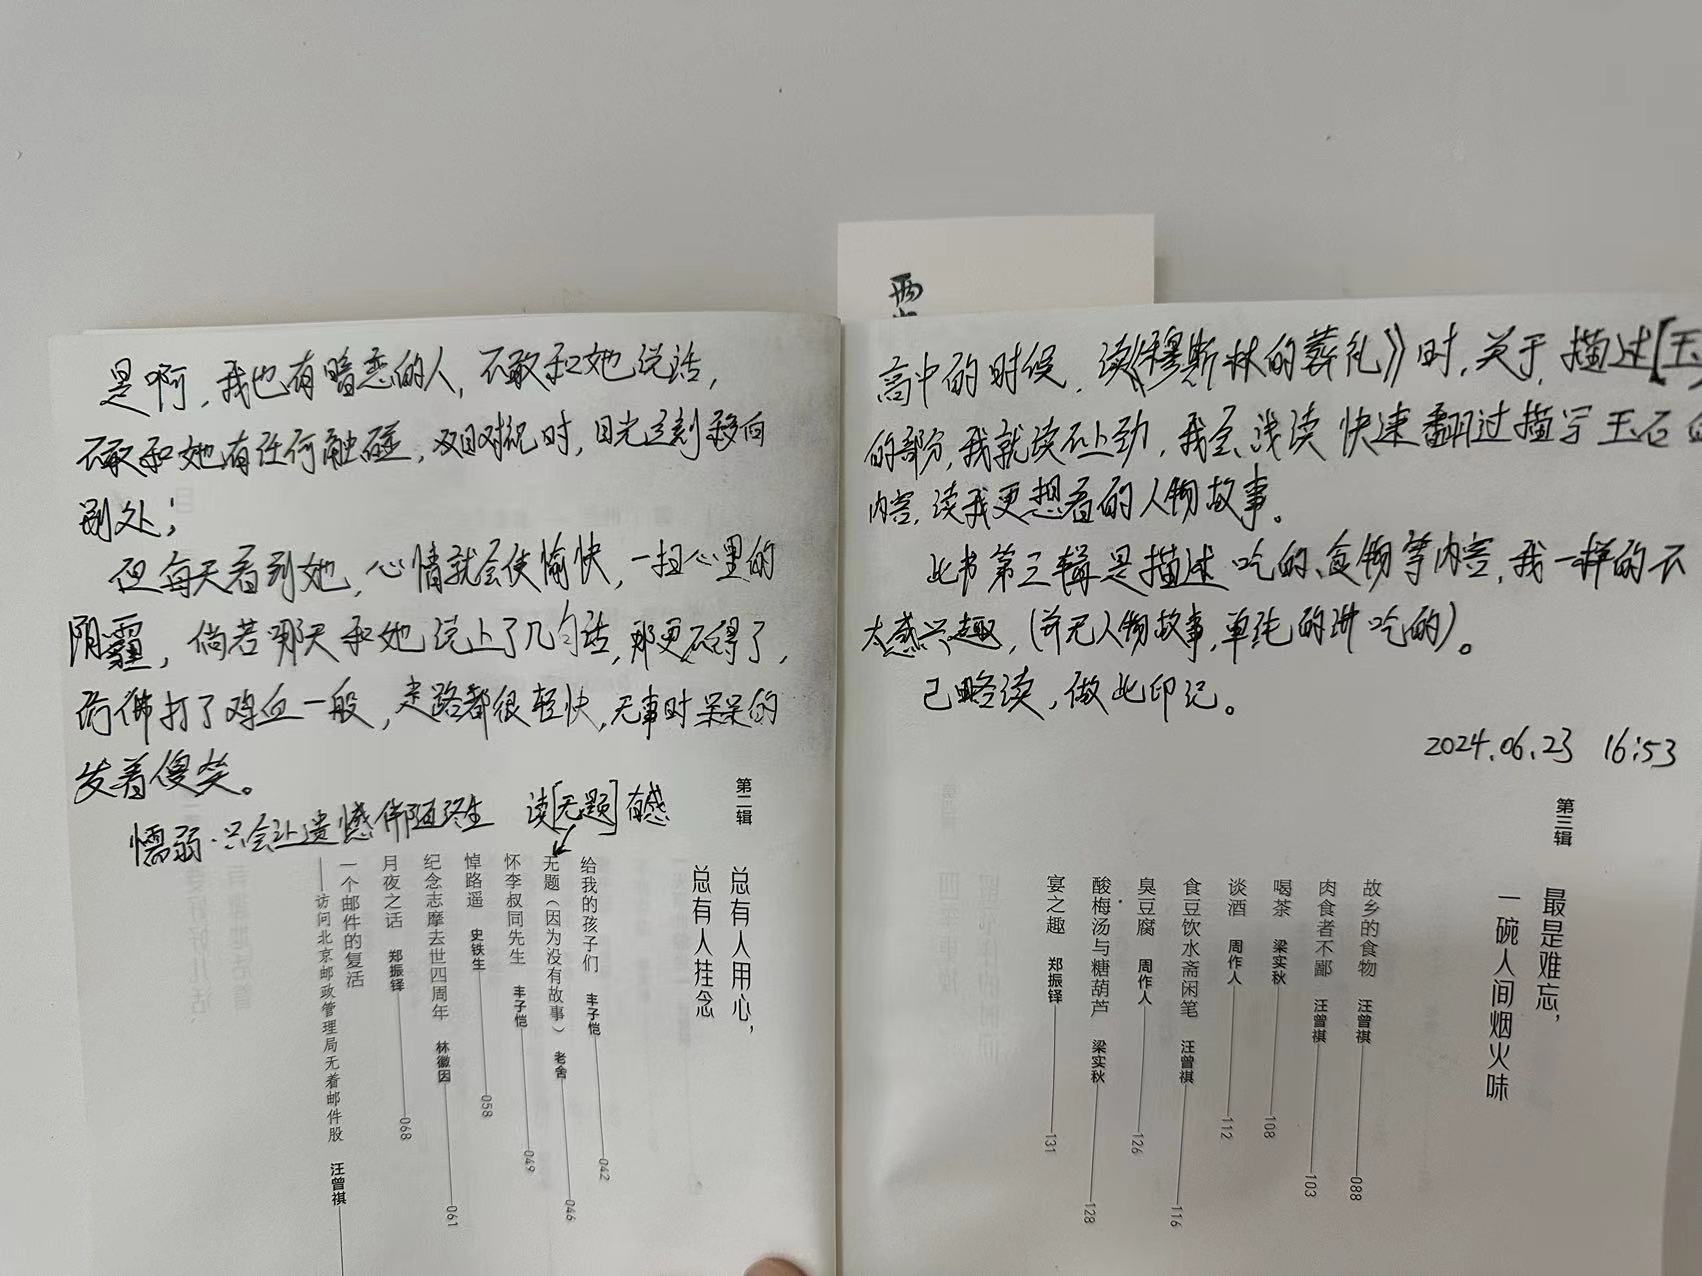 是啊，我也有暗恋的人，不敢和她说话，
不敢和她有任何触碰，双目对视时，目光立刻移向
别处；
但每天看到她，心情就会使愉快，一扫心里的
阴霾，倘若哪天和她说上了几句话，那更不得了，
仿佛打了鸡血一般，走路都很轻快，无事时呆呆的
发着傻笑。
懦弱·只会让遗憾伴随终生 读[无题]有感
第二辑
总有人用心，
总有人挂念
给我的孩子们 丰子恺 042
无题（因为没有故事） 老舍 046
怀李叔同先生 丰子恺 049
悼路遥 史铁生 058
纪念志摩去世四周年 林徽因 061
月夜之话 郑振铎 068
一个邮件的复活
——访问北京邮政管理局无着邮件股 汪曾祺
高中的时候，读《穆斯林的葬礼》时，关于，描述[玉
的部分，我就读不上劲，我会浅读快速翻过描写玉石的
内容，读我更想看的人物故事。
此书第三辑是描述吃的、食物等内容，我一样的不
太感兴趣，（并无人物故事，单纯的讲吃的）。
已略读，做此印记。
2024.06.23 16:53
第三辑
最是难忘，
一碗人间烟火味
故乡的食物 汪曾祺 088
肉食者不鄙 汪曾祺 103
喝茶 梁实秋 108
谈酒 周作人 112
食豆饮水斋闲笔 汪曾祺 116
臭豆腐 周作人 126
酸梅汤与糖葫芦 梁实秋 128
宴之趣 郑振铎 131